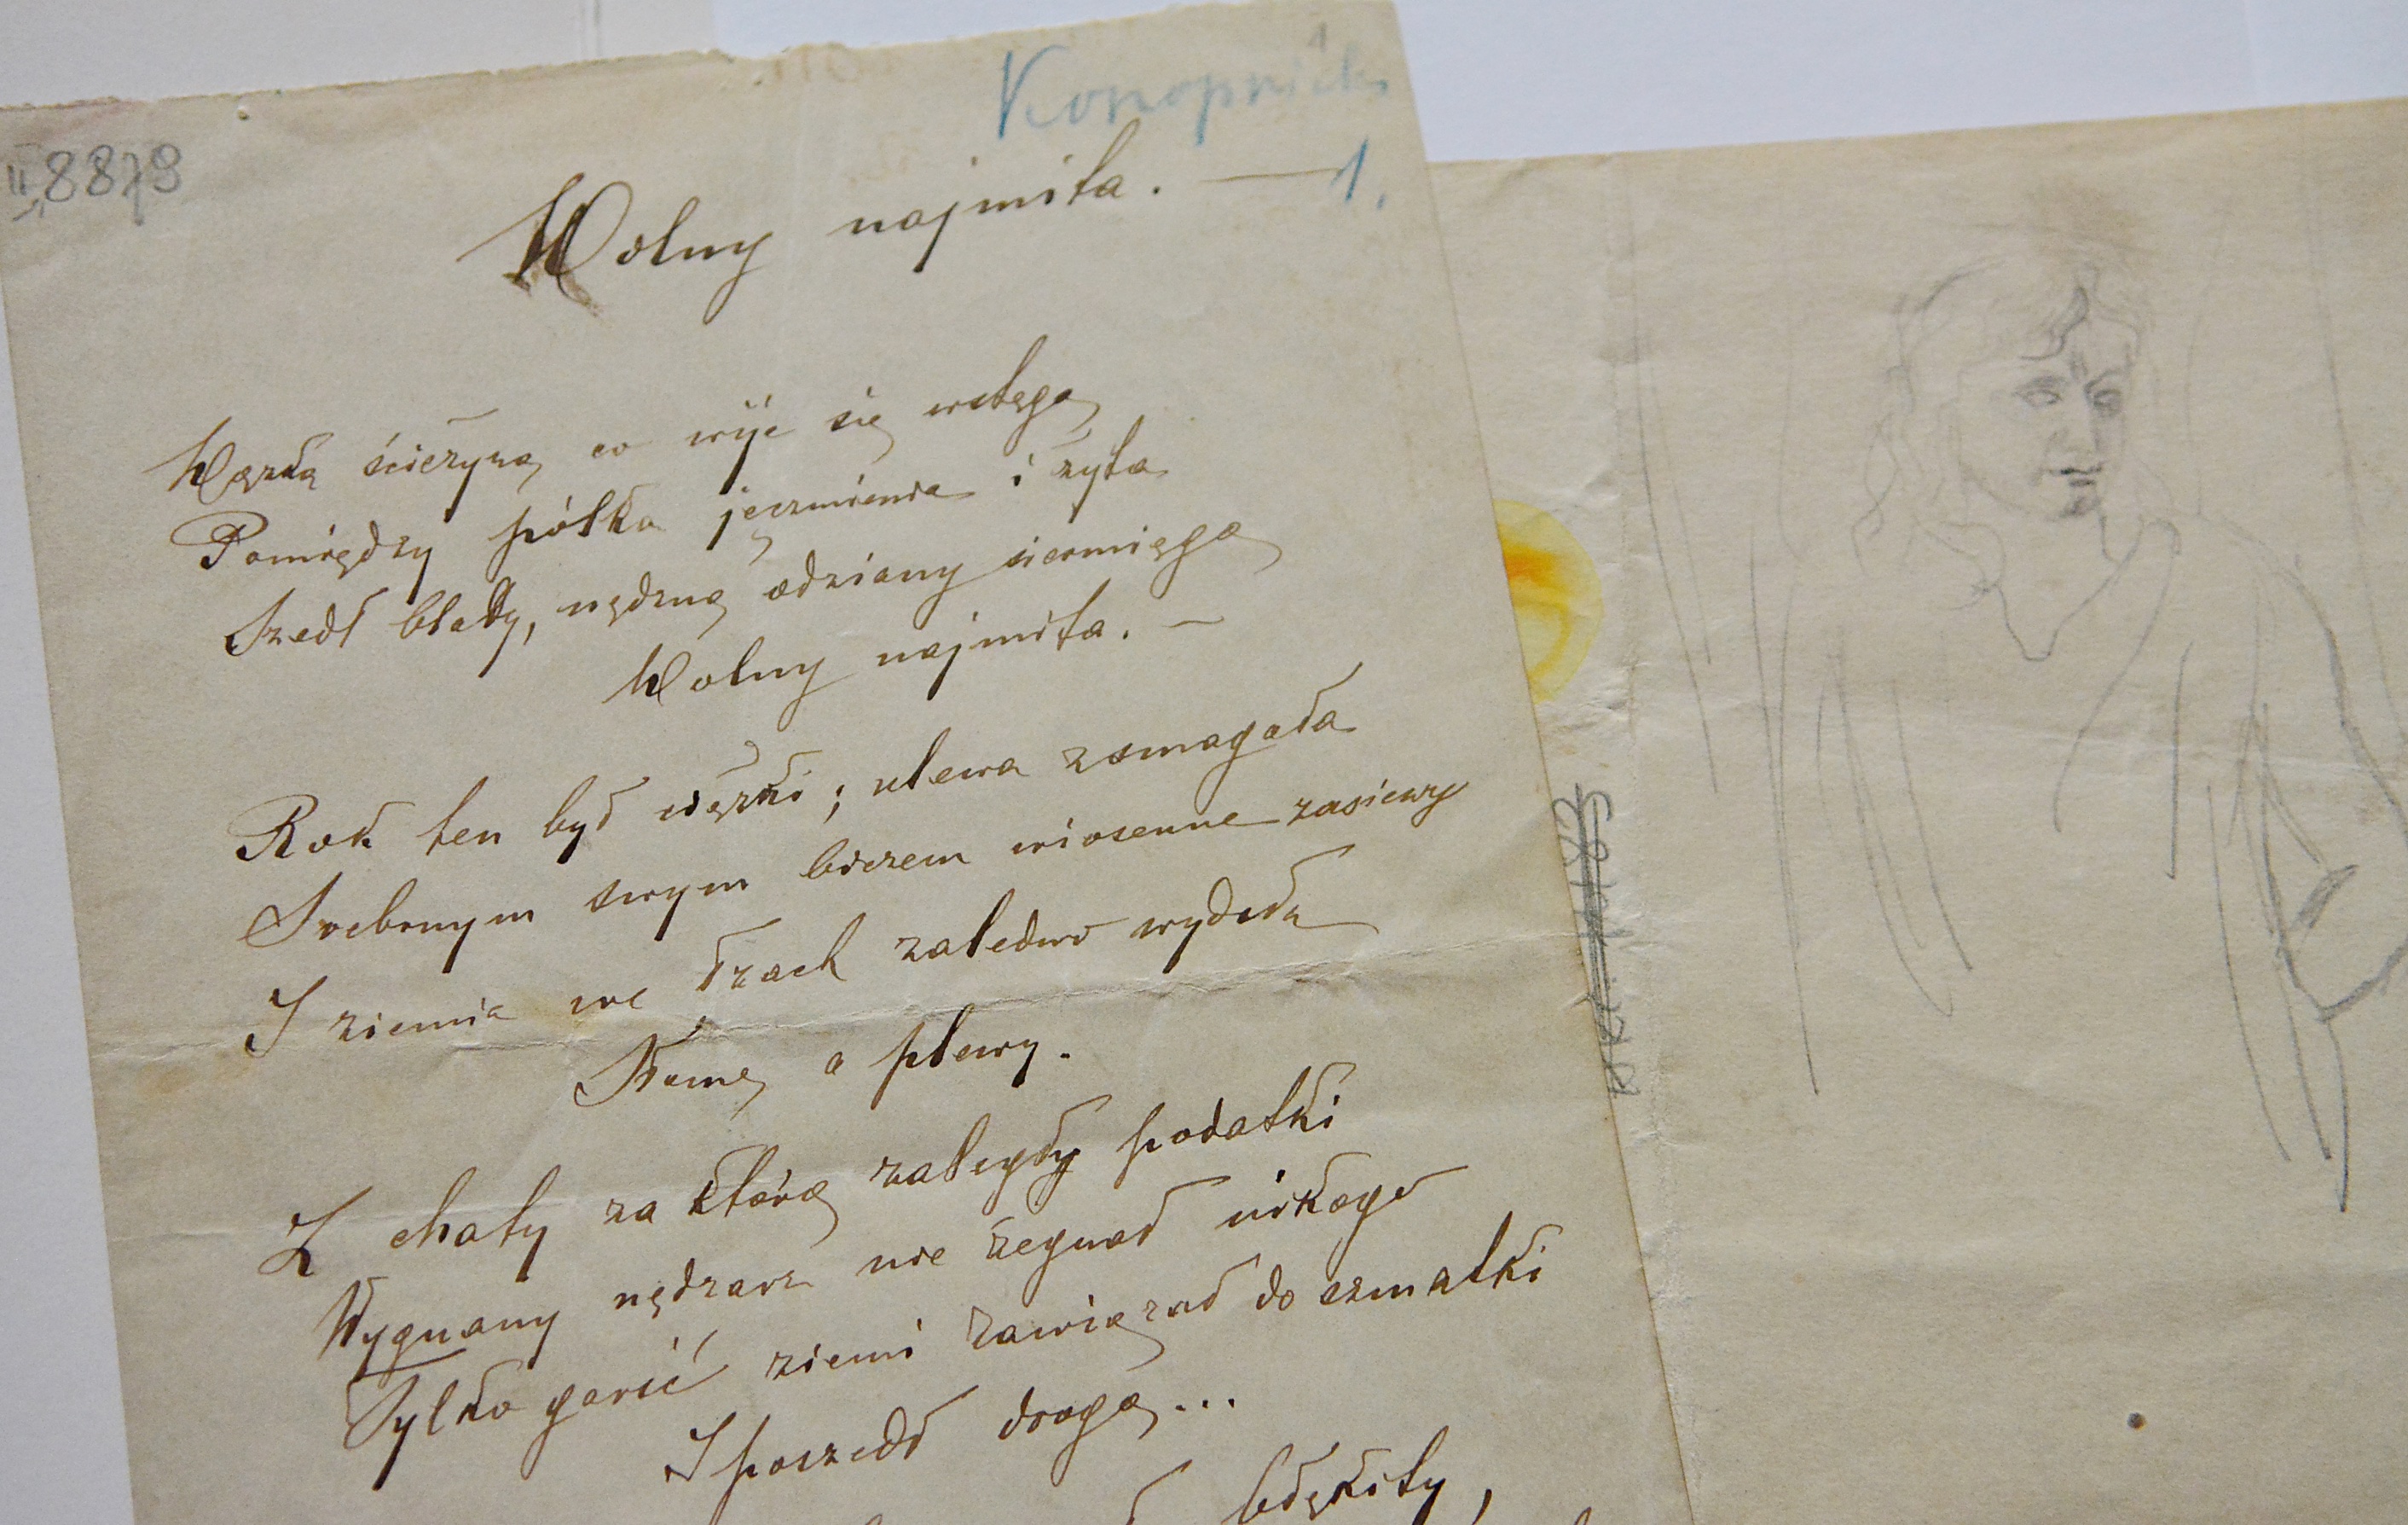 8879
Konopnicka
1.
Wolny najmita.
Wązką ścieżyną, co wije się wstęgą
Pomiędzy pólka jęczmienia i żyta
Szedł blady, nędzną odziany siermięgą
Wolny najmita. —
Rok ten był ciężki; ulewa zsmagała
Srebrnym swym biczem wiosenne zasiewy
I ziemia we łzach zaledwo wydała
Słomę a plewy.
Z chaty za którą zaległy podatki
Wygnany nędzarz nie żegnał nikogo
Tylko garść ziemi zawiązał do szmatki
I poszedł drogą...
błękity,